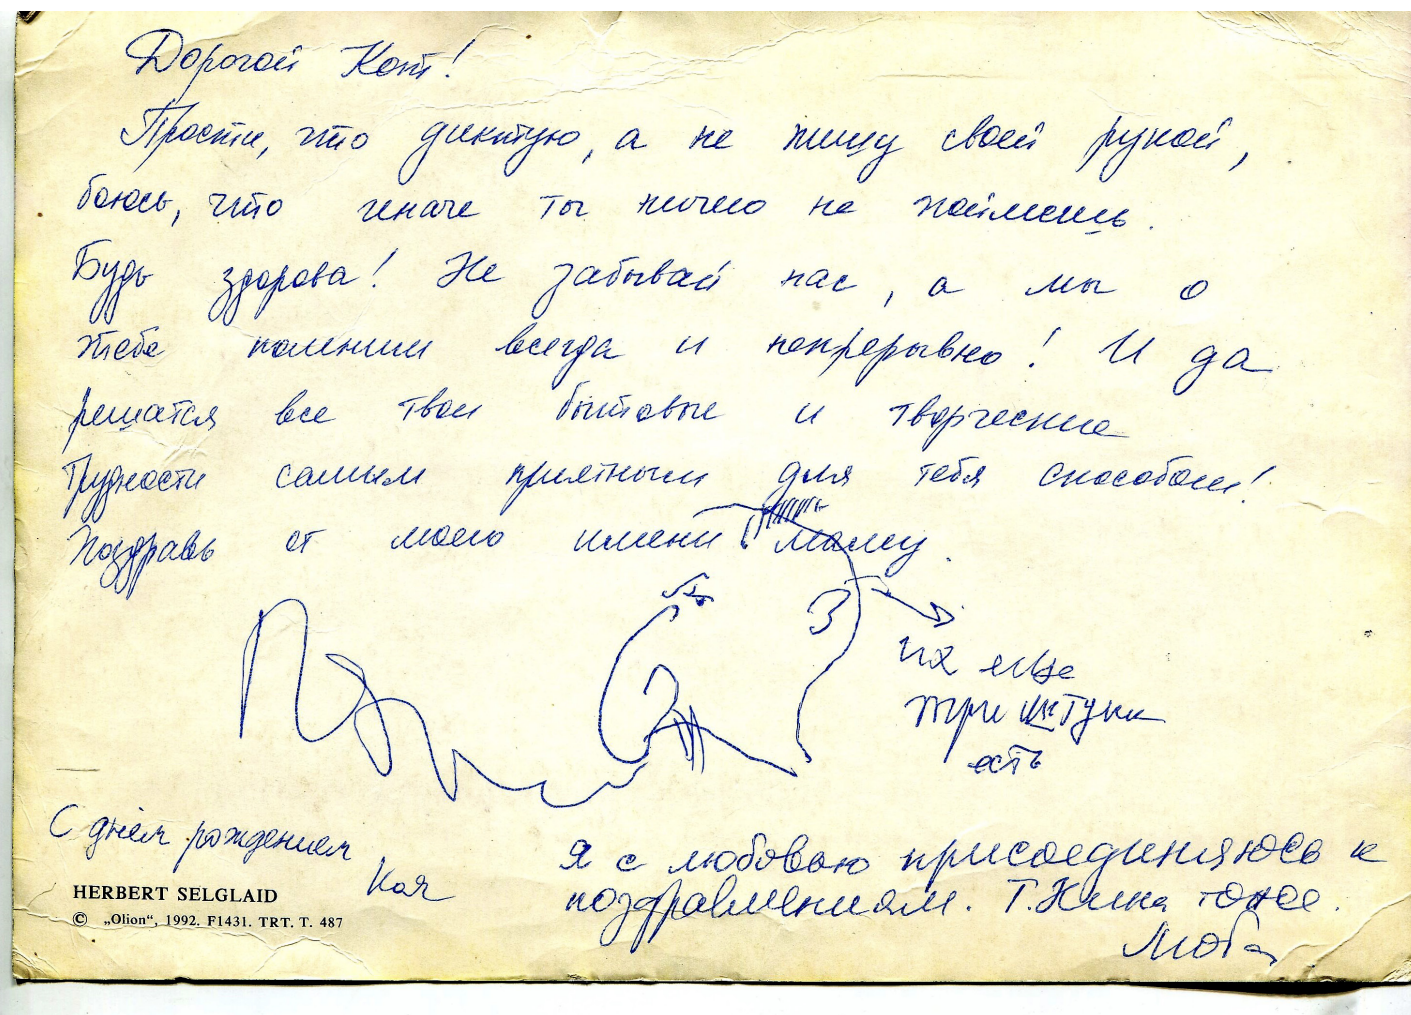 Дорогой Кот!
Прости, что диктую, а не пишу своей рукой,
боюсь, что иначе ты ничего не поймешь.
Будь здорова! Не забывай нас, а мы о
тебе помним всегда и непрерывно! И да
решатся все твои бытовые и творческие
трудности самым приятным для тебя способом!
Поздравь от моего имени маму.
их еще
три штуки
есть
С днём рождением
Кот
Я с любовью присоединяюсь к
поздравлениям. Т. Нина тоже.
Люба
HERBERT SELGLAID
© „Olion“, 1992. F1431. TRT. T. 487